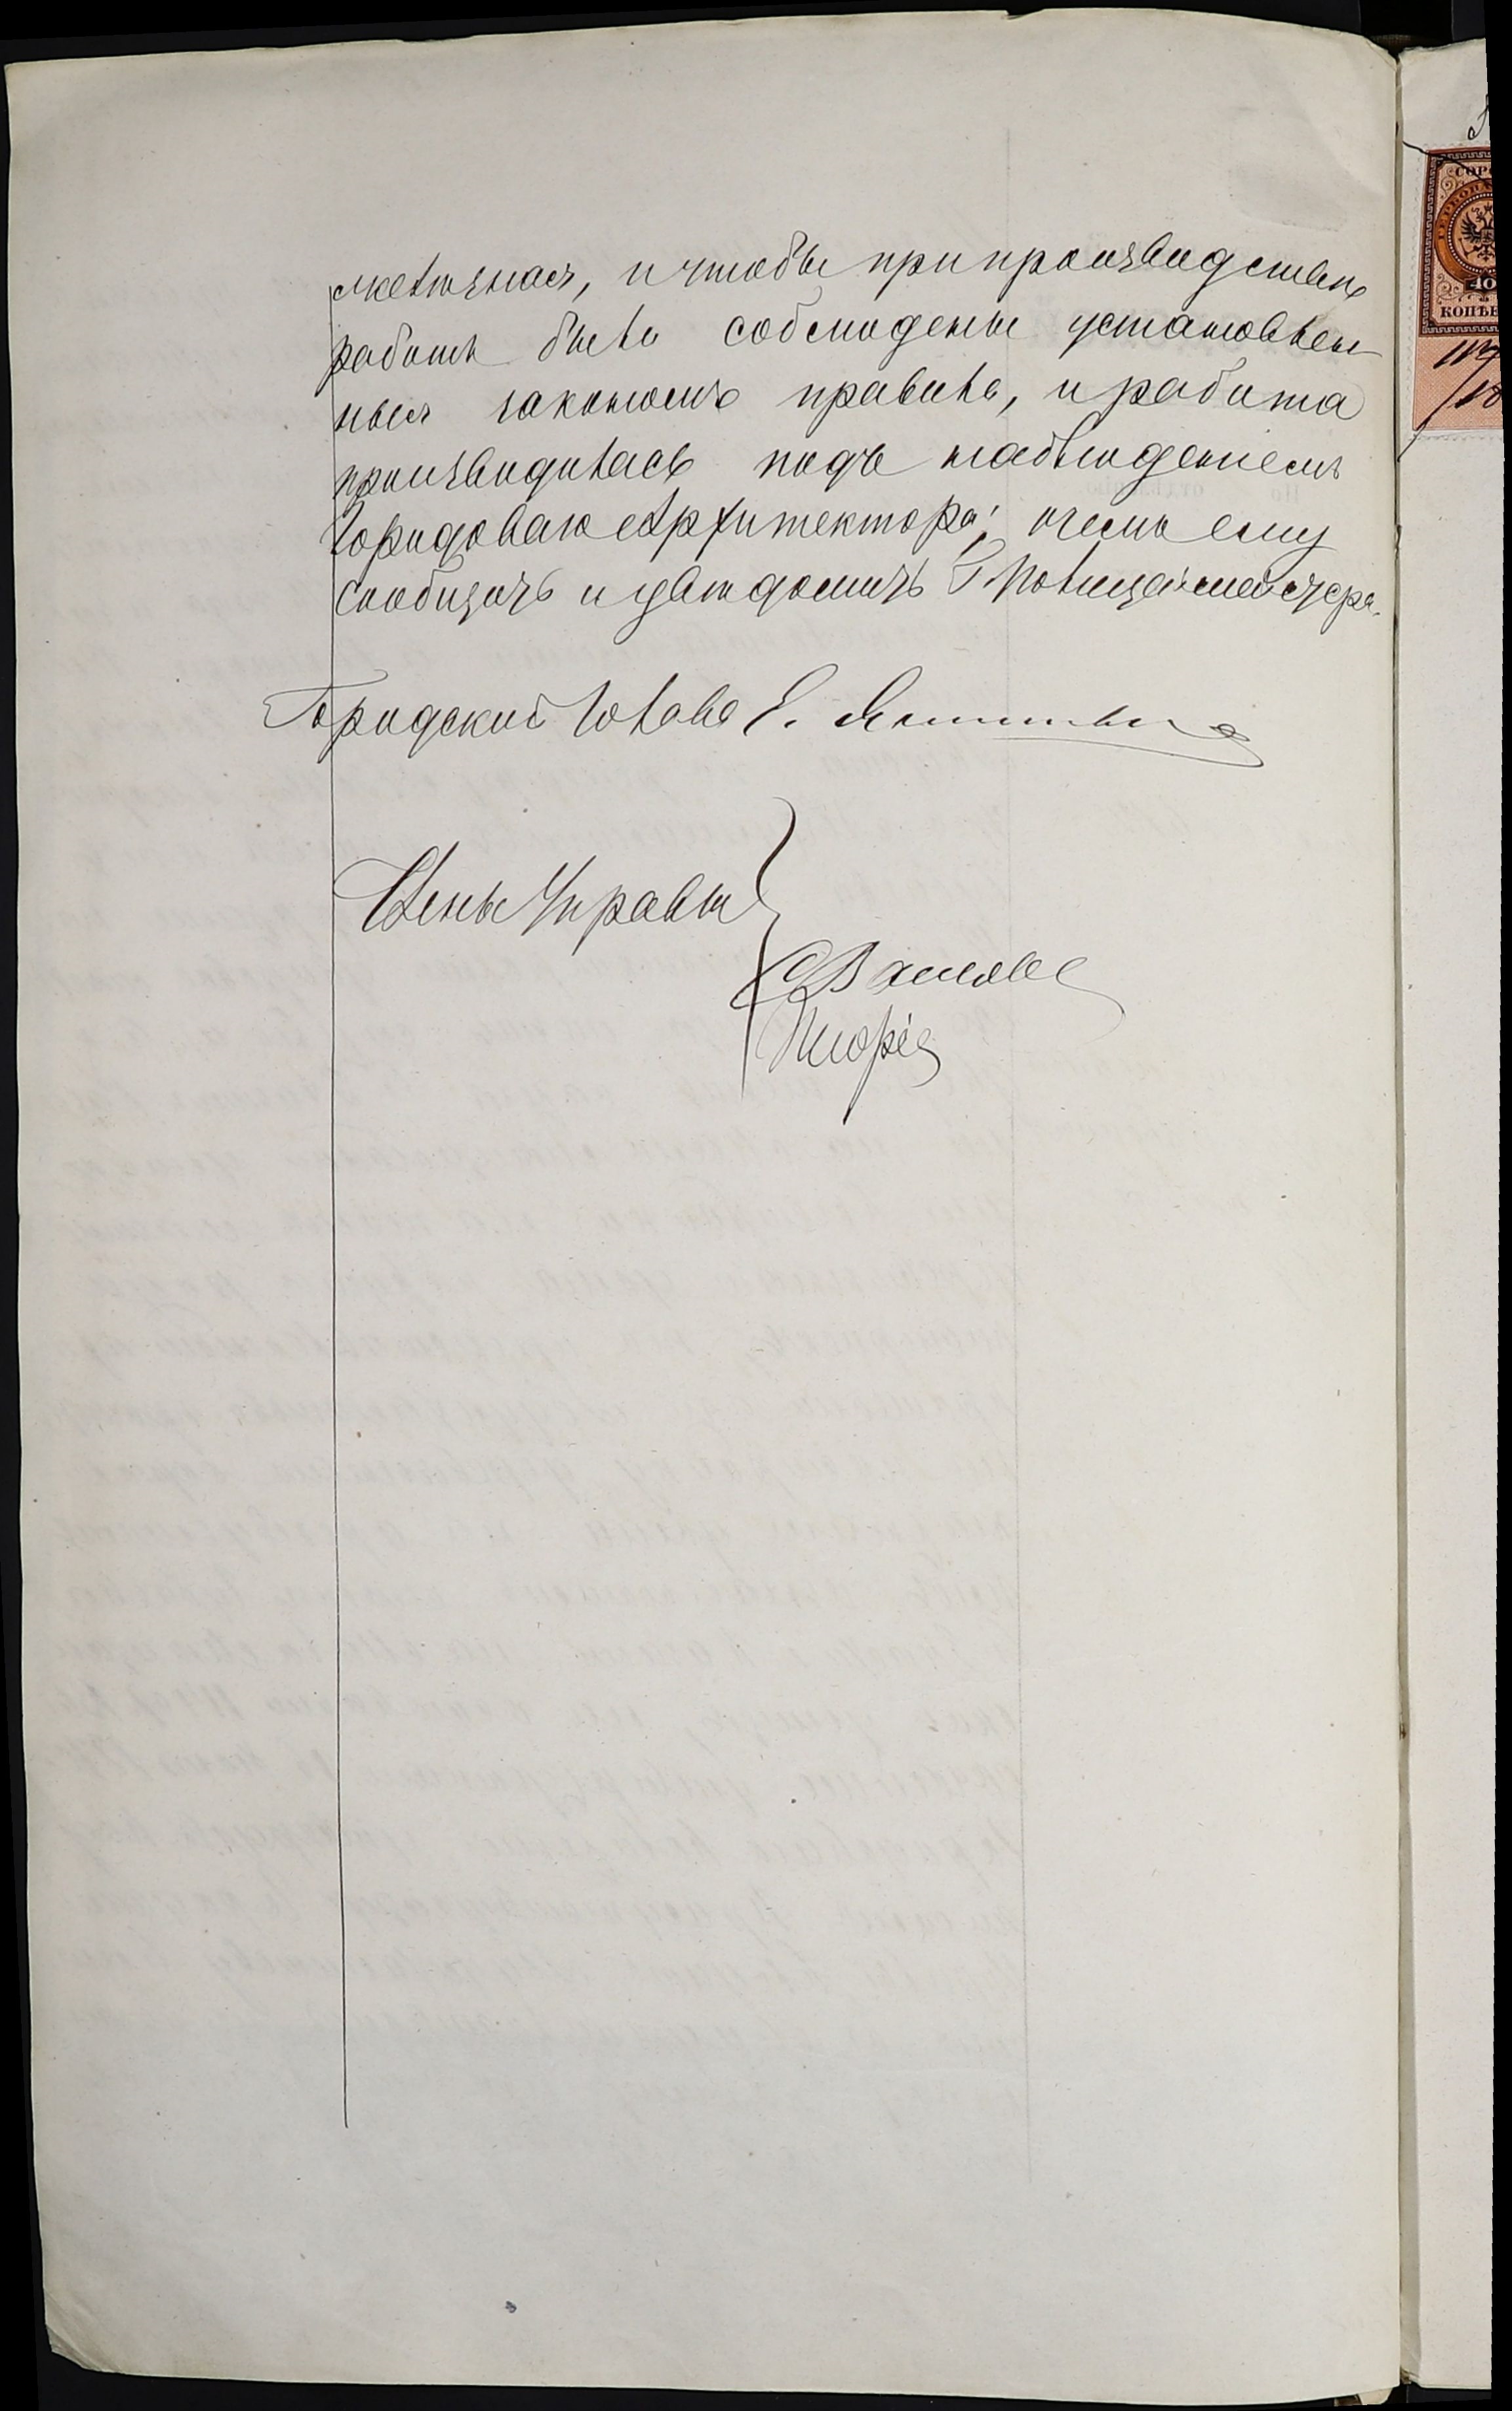 желѣзная, и чтобы при производствѣ
работъ были соблюдены установлен
ныя закономъ правила, и работа
производилась подъ наблюденіемъ
Городоваго Архитектора; о чемъ ему
сообщить и увѣдомить Г Полицеймейстера.
Городской Голова Е.
Члены Управы
СОР
КОПѢ